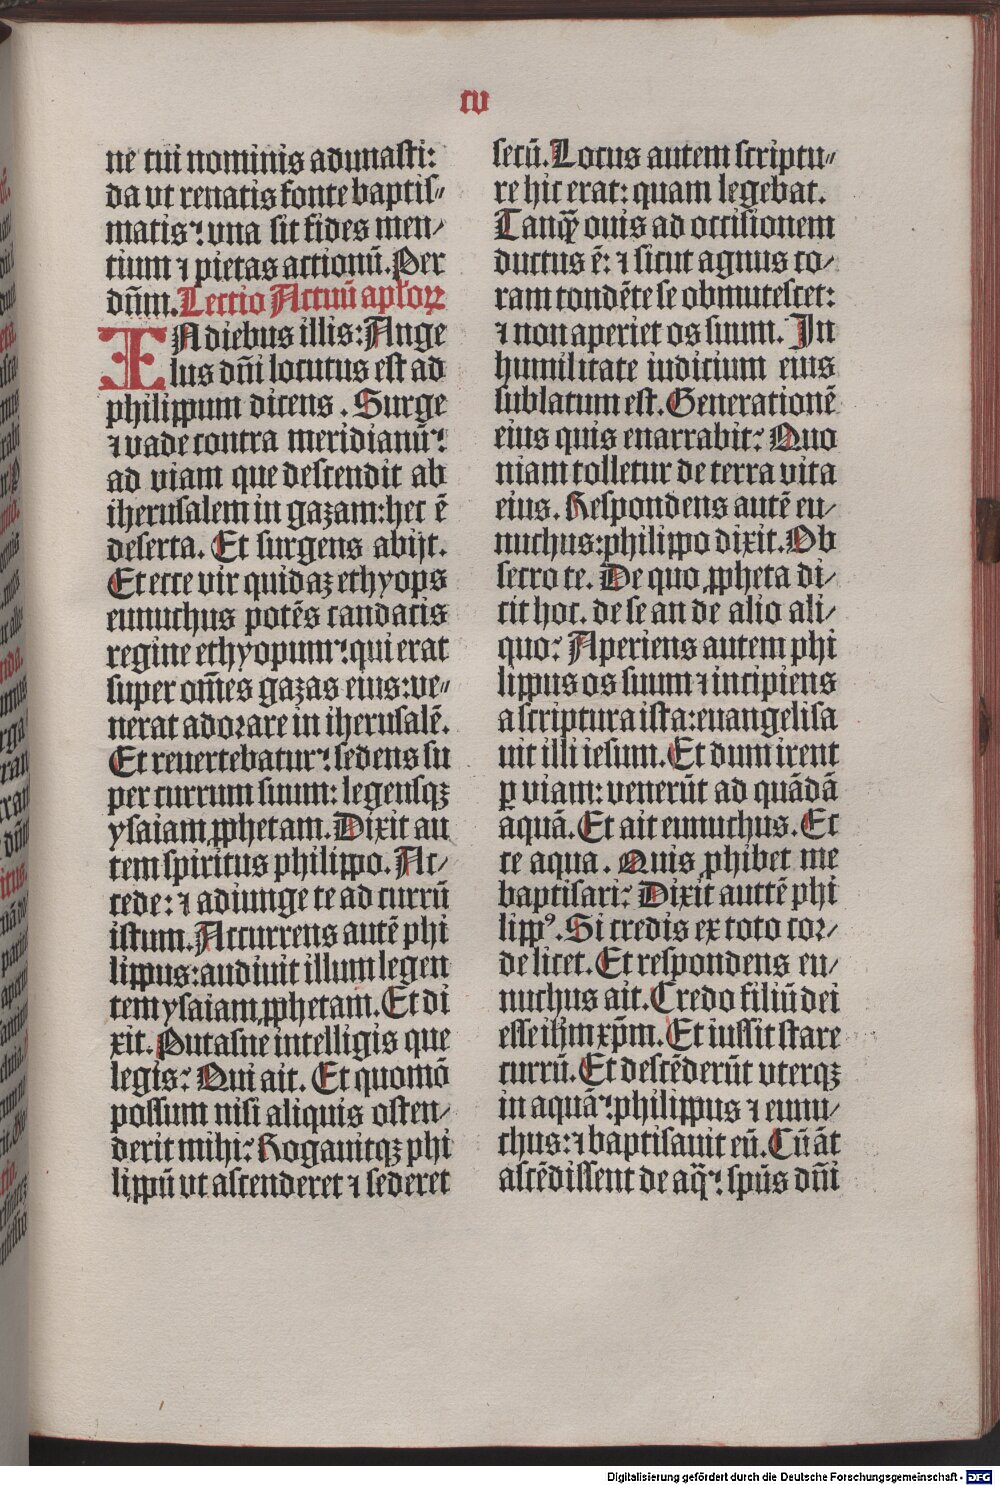 cv
ne tui nominis adunasti:
da vt renatis fonte baptis⸗
matis: vna sit fides men/
tium ⁊ pietas actionū. Per
dn̄m. Lectio Actuū apl'oꝝ
IN diebus illis: Ange
lus dn̄i locutus est ad
philippum dicens. Surge
⁊ vade contra meridianū:
ad viam que descendit ab
iherusalem in gazam: hec ē
deserta. Et surgens abijt.
Et ecce vir quidaꝫ ethyops
eunuchus potēs candacis
regine ethyopum: qui erat
super om̄es gazas eius: ve⸗
nerat adorare in iherusalē.
Et reuertebatur: sedens su
per currum suum: legensqꝫ
ysaiam ꝓphetam. Dixit au
tem spiritus philippo. Ac/
cede: ⁊ adiunge te ad currū
istum. Accurrens autē phi
lippus: audiuit illum legen
tem ysaiam ꝓphetam. Et di
xit. Putasne intelligis que
legis: Qui ait. Et quomō
possum nisi aliquis osten/
derit mihi: Rogauitqꝫ phi
lippū vt ascenderet ⁊ sederet
secū. Locus autem scriptu⸗
re hic erat: quam legebat.
Tanqꝫ ouis ad occisionem
ductus ē: ⁊ sicut agnus co/
ram tondēte se obmutescet:
⁊ non aperiet os suum. In
humilitate iudicium eius
sublatum est. Generationē
eius quis enarrabit: Quo
niam tolletur de terra vita
eius. Respondens autē eu/
nuchus: philippo dixit. Ob
secro te. De quo ꝓpheta di/
cit hoc. de se an de alio ali/
quo: Aperiens autem phi
lippus os suum ⁊ incipiens
a scriptura ista: euangelisa
uit illi iesum. Et dum irent
ꝑ viam: venerūt ad quādā
aquā. Et ait eunuchus. Ec
ce aqua. Quis ꝓhibet me
baptisari: Dixit auttē phi
lippꝰ. Si credis ex toto cor/
de licet. Et respondens eu/
nuchus ait. Credo filiū dei
esse ihm̄ xp̄m. Et iussit stare
currū. Et descēderūt vterqꝫ
in aquā: philippus ⁊ eunu/
chus: ⁊ baptisauit eū. Cū āt
ascēdissent de aq̄: sp̄us dn̄i
Digitalisierung gefördert durch die Deutsche Forschungsgemeinschaft - DFG